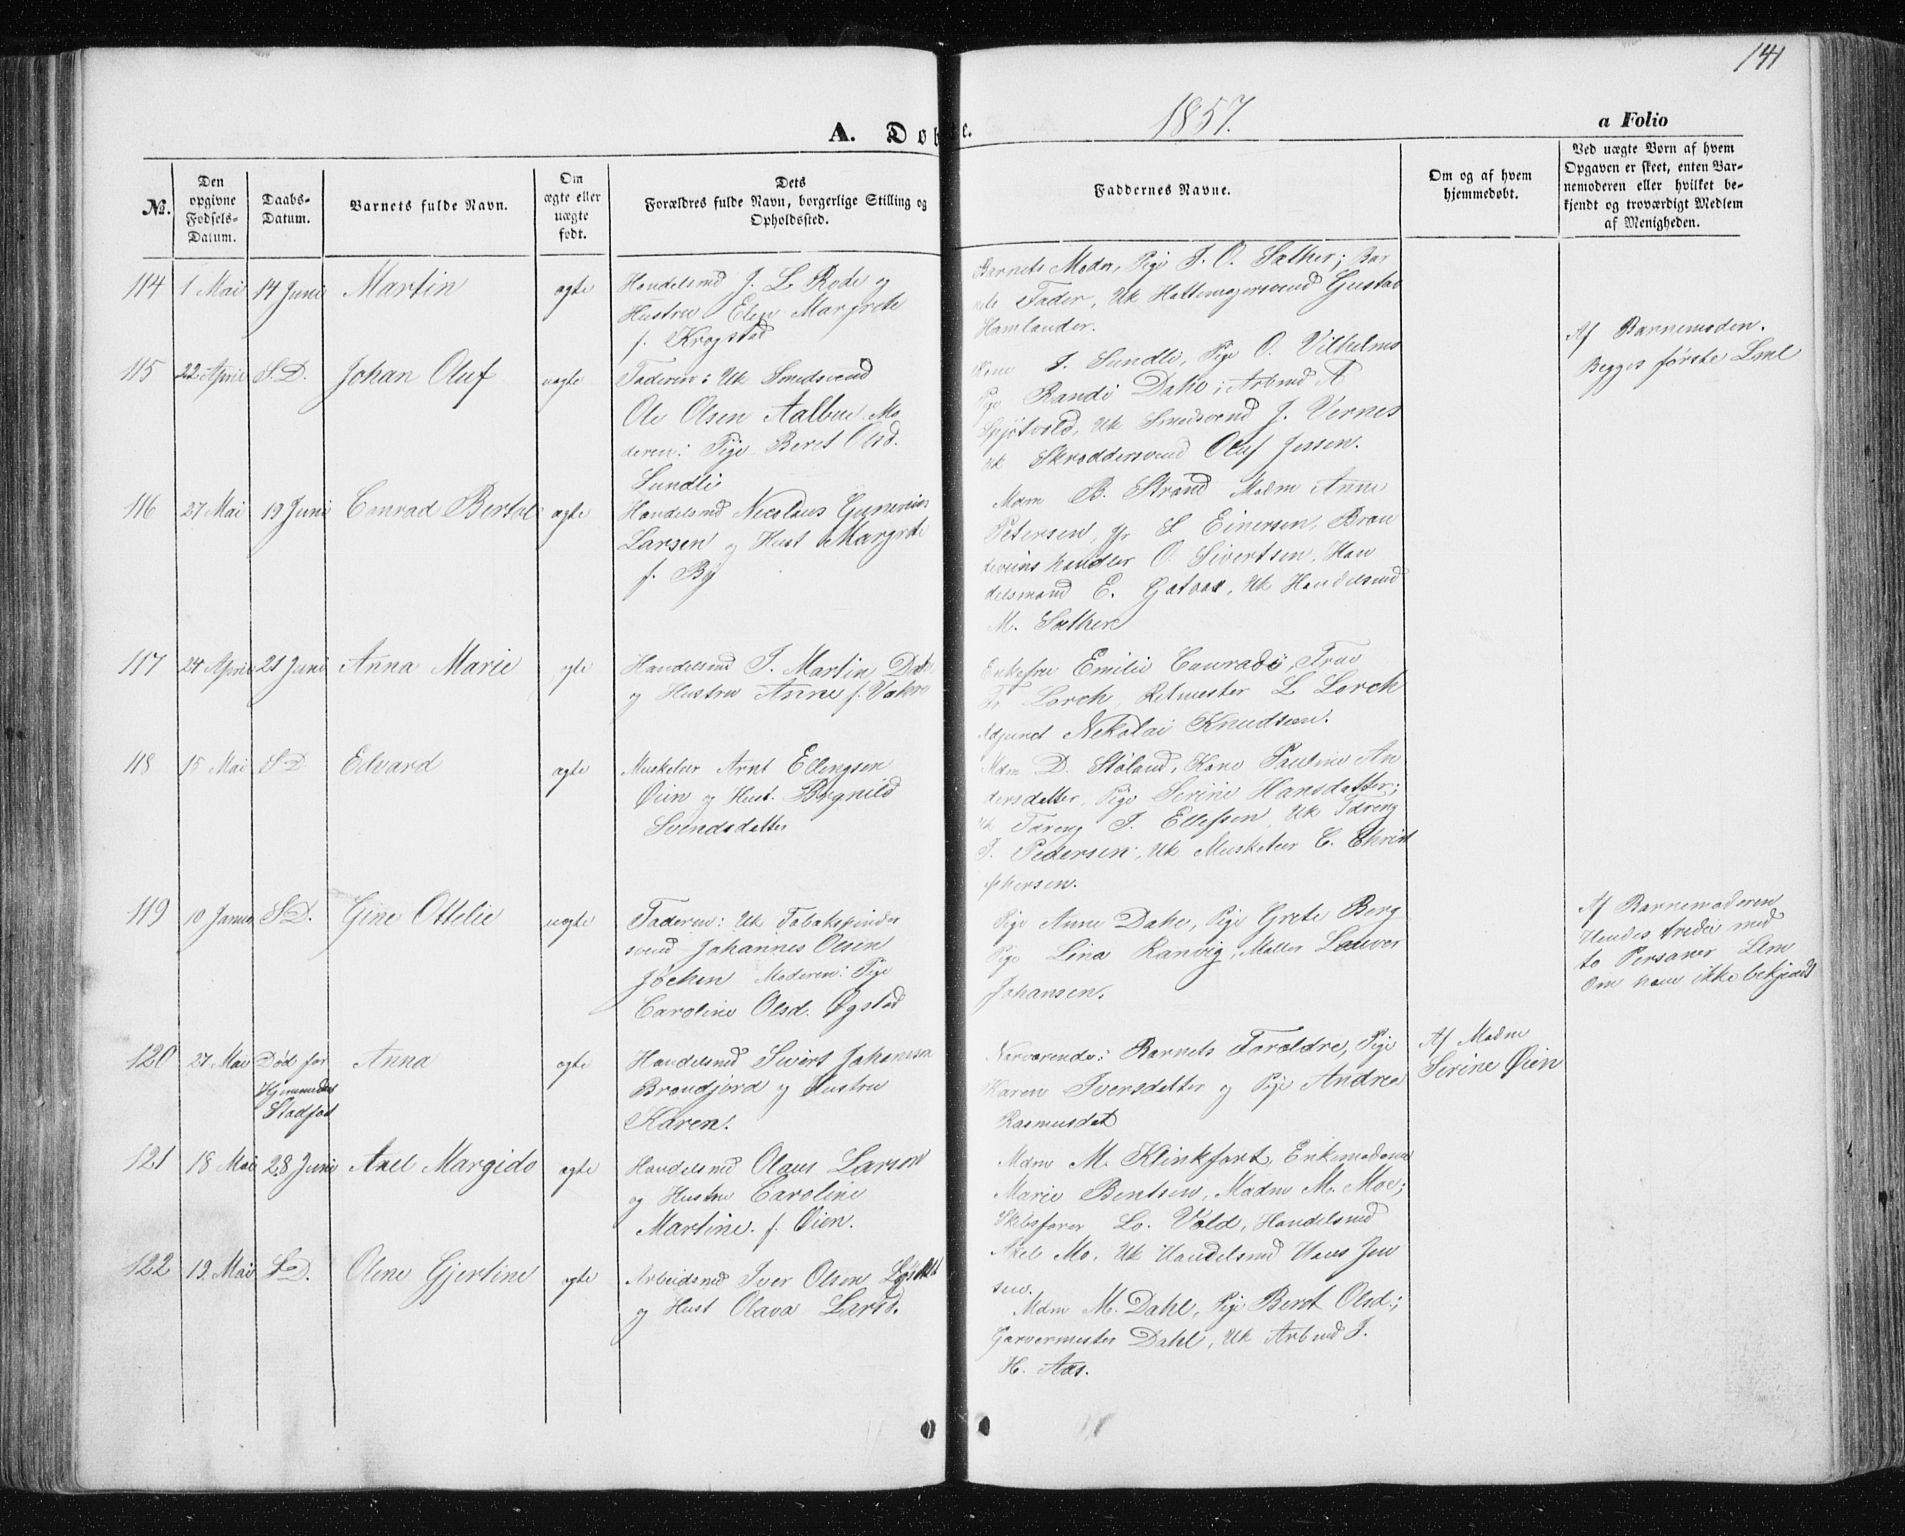 141
A. Døbte.
1857.
a Folio
No.
Den opgivne Fødsels-Datum.
Daabs-Datum.
Barnets fulde Navn.
Om ægte eller uægte født.
Dets Forældres fulde Navn, borgerlige Stilling og Opholdssted.
Faddernes Navne.
Om og af hvem hjemmedøbt.
Ved uægte Børn af hvem Opgaven er skeet, enten Barnemoderen eller hvilket bekjendt og troværdigt Medlem af Menigheden.
114 1 Mai 14 Juni Martin ægte
Handelsmd J. L. Rode og
Hustru Elen Margrete
f. Krogstad
Barnets Moder, Pige J. O. Sæther; Bar
nets Fader, Uk Hattemagersvend Gustav
Hamlander.
115 22 April S.D. Johan Oluf uægte
Faderen: Uk Smedsvend
Ole Olsen Aalbue. Mo
deren: Pige Beret Olsd.
Sundli
J. Sundli, Pige O. Vilhelms
Pige Randi Dahl; Arbmd A
Spjøtvold, Uk Smedsvend J. Vernes
Uk Skræddersvend Oluf Jensen.
Af Barnemoderen.
Begges første Leml
116 27 Mai 19 Juni Conrad Bertol ægte
Handelsmd Nicolaus Gunerius
Larsen og Hust Margrete
f. By
Mdm B. Strand Madm Anne
Petersen, Jfr S. Einersen, Bræn
deviinshandler O. Sivertsen, Han
delsmand E. Gataas, Uk Handelsmd
M. Sæther
117 24 April 21 Juni Anna Marie ægte
Handelsmd J. Martin Dahl
og Hustru Anne f.
Enkefru Emilie Conradi, Frue
Fr Lorck, Ritmester L Lorck
Adjunct Nikolai Knudsen.
118 15 Mai S.D. Edvard ægte
Musketeer Arnt Ellingsen
Øien og Hust. Bregnild
Svendsdatter
Mdm D. Støland, Kone Pauline An
dersdatter, Pige Serine Hansdatter;
Uk Tdreng J. Ellefsen, Uk Tdreng
J. Pedersen, Uk Musketeer C. Christ
ophersen.
119 10 Januar S.D. Gine Ottelie uægte
Faderen: Uk Tobakspinder
svend Johannes Olsen
Jøchen Moderen: Pige
Caroline Olsd. Øgstad
Pige Anne Dahl, Pige Grete Berg
Pige Lina Ranvig, Møller Laurer
Johansen.
Af Barnemoderen
Hendes tredie med
to Personer Lem
Om ham ikke bekjendt
120 27 Mai Død før Hjemmedaab Stadfæst Anna ægte
Handelsmd Sivert Johansen
Brandjord og Hustru
Karen.
Nærværende: Barnets Forældre, Pige
Karen Iversdatter og Pige Andrea
Rasmusdat
Af Madm
Serine Øien
121 18 Mai 28 Juni Axel Margido ægte
Handelsmd Olaus Larsen
og Hustru Caroline
Martine. f. Øien.
Mdm M. Klinkfort, Enkemadame
Marie Bentsen, Madm M. Moe;
Skibsfører Lo. Vold, Handelsmd
Axel Mo, Uk Handelsmd Hans Jen
sen.
122 19. Mai S.D. Oline Gjertine ægte
Arbeidsmd Iver Olsen
og Hust Olava Larsd.
Mdm M. Dahl, Pige Beret Olsd.;
Garvermester Dahl, Uk Arbmd J.
H. Aas.